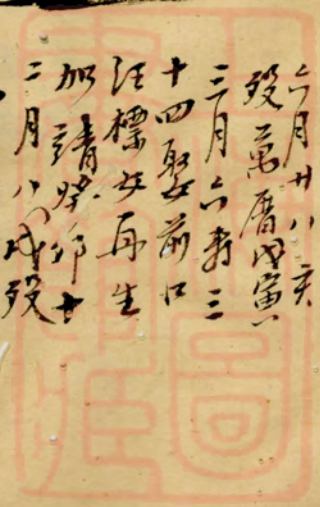 六月廿八亥
殁萬曆戊寅
三月六寿三
十四娶前口
汪標女再生
加靖癸卯十
二月八戌殁